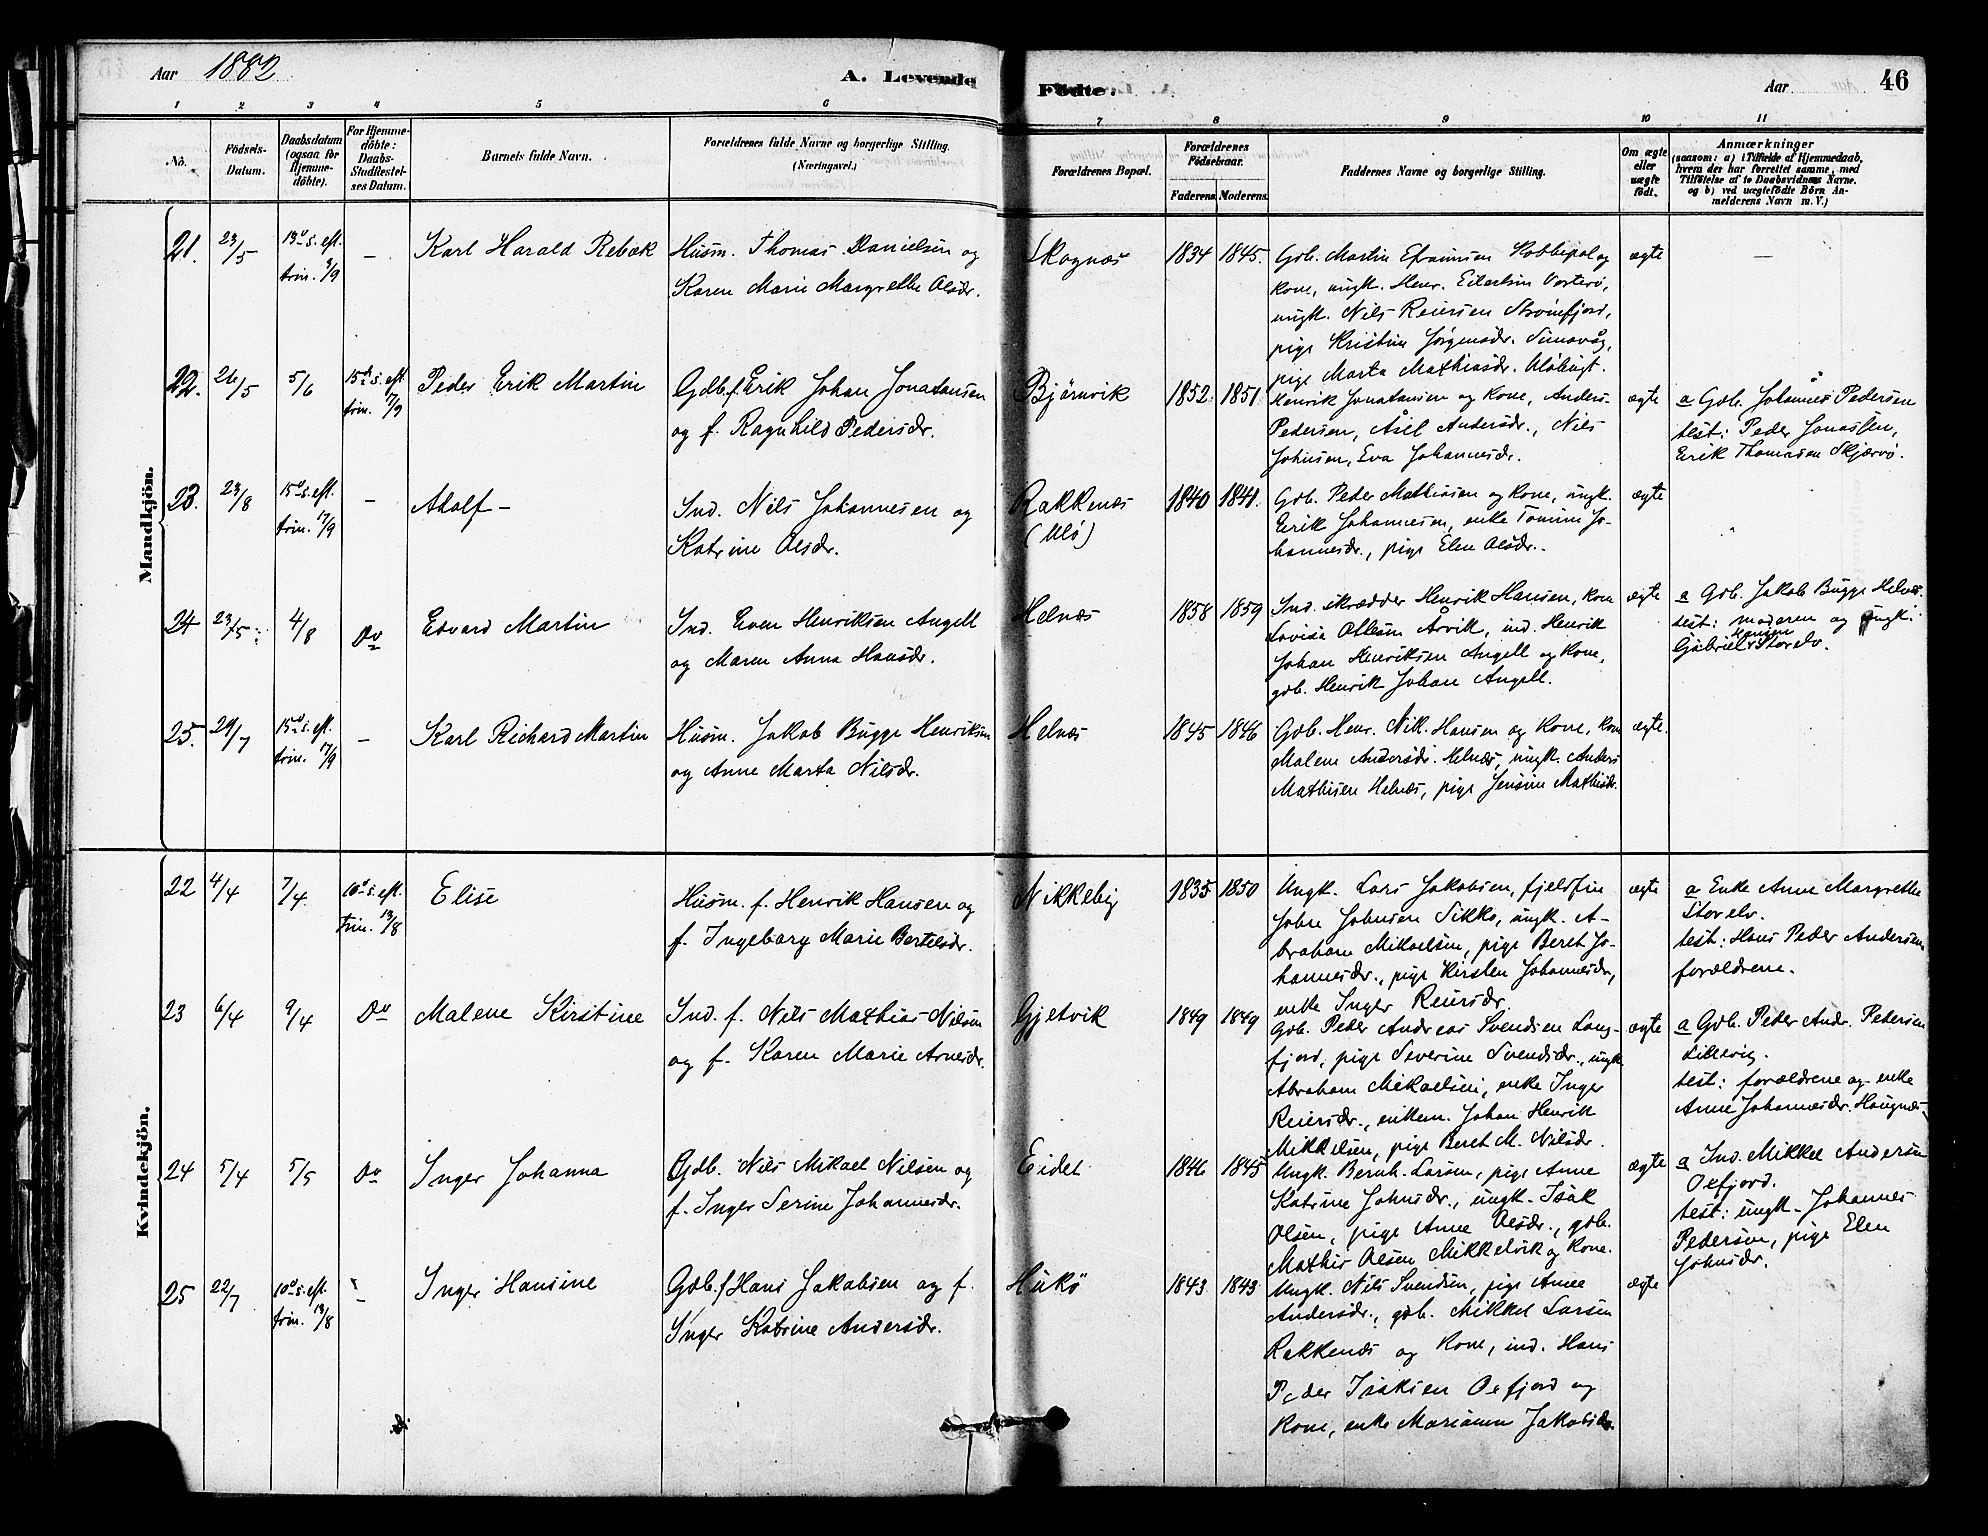 Aar 1882
A. Levende Födte.
Aar
46
1 2 3 4 5 6 7 8 9 10 11
No.
Födsels-Datum.
Daabsdatum (ogsaa for Hjemme-döbte).
For Hjemme-döbte: Daabs-Stadfæstel-ses Datum.
Barnets fulde Navn.
Forældrenes fulde Navne og borgerlige Stilling.
(Næringsvei.)
Forældrenes Bopæl.
Forældrenes Födselsaar.
Faderens. Moderens.
Faddernes Navne og borgerlige Stilling.
Om ægte eller uægte födt.
Anmærkninger
(saasom: a) i Tilfælde af Hjemmedaab,
hvem der har forrettet samme, med
Tilföielse af to Daabsvidners Navne.
og b) ved uægtefödte Börn An-
melderens Navn m. V.)
Mandkjön.
21. 23/5 13de s. eft. trin. 3/9 – Karl Harald Rebæk
Husm. Thomas Danielsen og
Karen Marie Margrethe Olsdr.
Skognæs 1834 1845.
Gdb. Martin Efraimsen Kobbepol og
kone, ungk. Henr. Eilertsen Vorterø,
ungk. Nils Reiersen Strømfjord,
pige Kristine Jørgensdr.
pige Marta Mathiasdr.
ægte –
22. 26/5 5/6 15de s. eft. trin. 17/9 Peder Erik Martin
Gdb. f. Erik Johan Jonatansen
og f. Ragnhild Pedersdr.
Bjørnvik 1852. 1851.
Henrik Jonatansen og kone, Anders
Pedersen, Åsel Andersdr., Nils
Johnsen, Eva Johannesdr.
ægte
a Gdb. Johannes Pedersen
test: Peder Jonassen,
Erik Thomasen Skjærvø.
23. 23/8 15de s. eft. trin. 17/9 – Adolf –
Ind. Nils Johannesen og
Katrine Olsdr.
Rakkenæs
(Ulø)
1840 1841.
Gdb. Peder Mathiasen og kone, ungk.
Erik Johannesen, enke Tomine Jo-
hannesdr., pige Elen Olsdr.
ægte
24 23/5 4/8 Do Edvard Martin
Ind. Even Henriksen Angell
og Maren Anna Hansdr.
Helnæs 1858 1859
Ind. skrædder Henrik Hansen, kone
Lovisa Ottesen Årvik, ind. Henrik
Johan Henriksen Angell og kone,
gdb. Henrik Johan Angell.
ægte
a Gdb. Jakob Bugge Helnæs.
test: moderen og ungk.
Gabriel Hansen Storelv.
25. 29/7 15de s. eft. trin. 17/9 – Karl Richard Martin
Husm. Jakob Bugge Henriksen
og Anne Marta Nilsdr.
Helnæs 1845 1846
Gdb. Henr. Nik. Hansen og kone, kone
Malene Andersdr. Helnæs, ungk. Anders
Mathisen Helnæs, pige Jensine Mathisdr.
ægte.
Kvindekjön.
22 4/4 7/4. 10de s. eft. trin. 13/8 Elise
Husm. f. Henrik Hansen og
f. Ingeborg Marie Bertelsdr.
Nikkeby 1835 1850
Ungk. Lars Jakobsen, fjeldfin
John Johnsen Sikko, ungk. A-
braham Mikaelsen, pige Beret Jo-
hannesdr., pige Kirsten Johannesdr,
enke Inger Reiersdr.
ægte
a Enke Anne Margrethe
Storelv.
test: Hans Peder Andersen,
forældrene.
23 6/4 9/4 Do Malene Kirstine
Ind. f. Nils Mathias Nilsen
og f. Karen Marie Arnesdr.
Gjetvik 1849 1849
Gdb. Peder Andreas Svendsen Lang-
fjord, pige Severine Svendsdr., ungk.
Abraham Mikaelsen, enke Inger
Reiersdr., enkem. Johan Henrik
Mikkelsen, pige Beret M. Nilsdr.
ægte
a Gdb. Peder Andr. Pedersen
Lillevig.
test: forældrene og enke
Anne Johannesdr. Haugnæs.
24 5/4 5/5 Do Inger Johanna
Gdb. Nils Mikael Nilsen og
f. Inger Serine Johannesdr.
Eidet 1846 1845
Ungk. Bernh. Larsen, pige Anne
Katrine Johnsdr., ungk. Isak
Olsen, pige Anne Olsdr., gdb.
Mathis Olsen Mikkelvik og kone.
ægte
a Ind. Mikkel Andersen
Oxfjord.
test: ungk. Johannes
Pedersen, pige Elen
Johnsdr.
25 22/7 10de s. eft. trin. 13/8 – Inger Hansine
Gdb. f. Hans Jakobsen og f.
Inger Katrine Andersdr.
Hukø 1843 1843
Ungk. Nils Svendsen, pige Anne
Andersdr., gdb. Mikkel Larsen
Rakkenæs og kone, ind. Hans
Peder Isaksen Oxfjord og
kone, enke Mariane Jakobsdr.
ægte